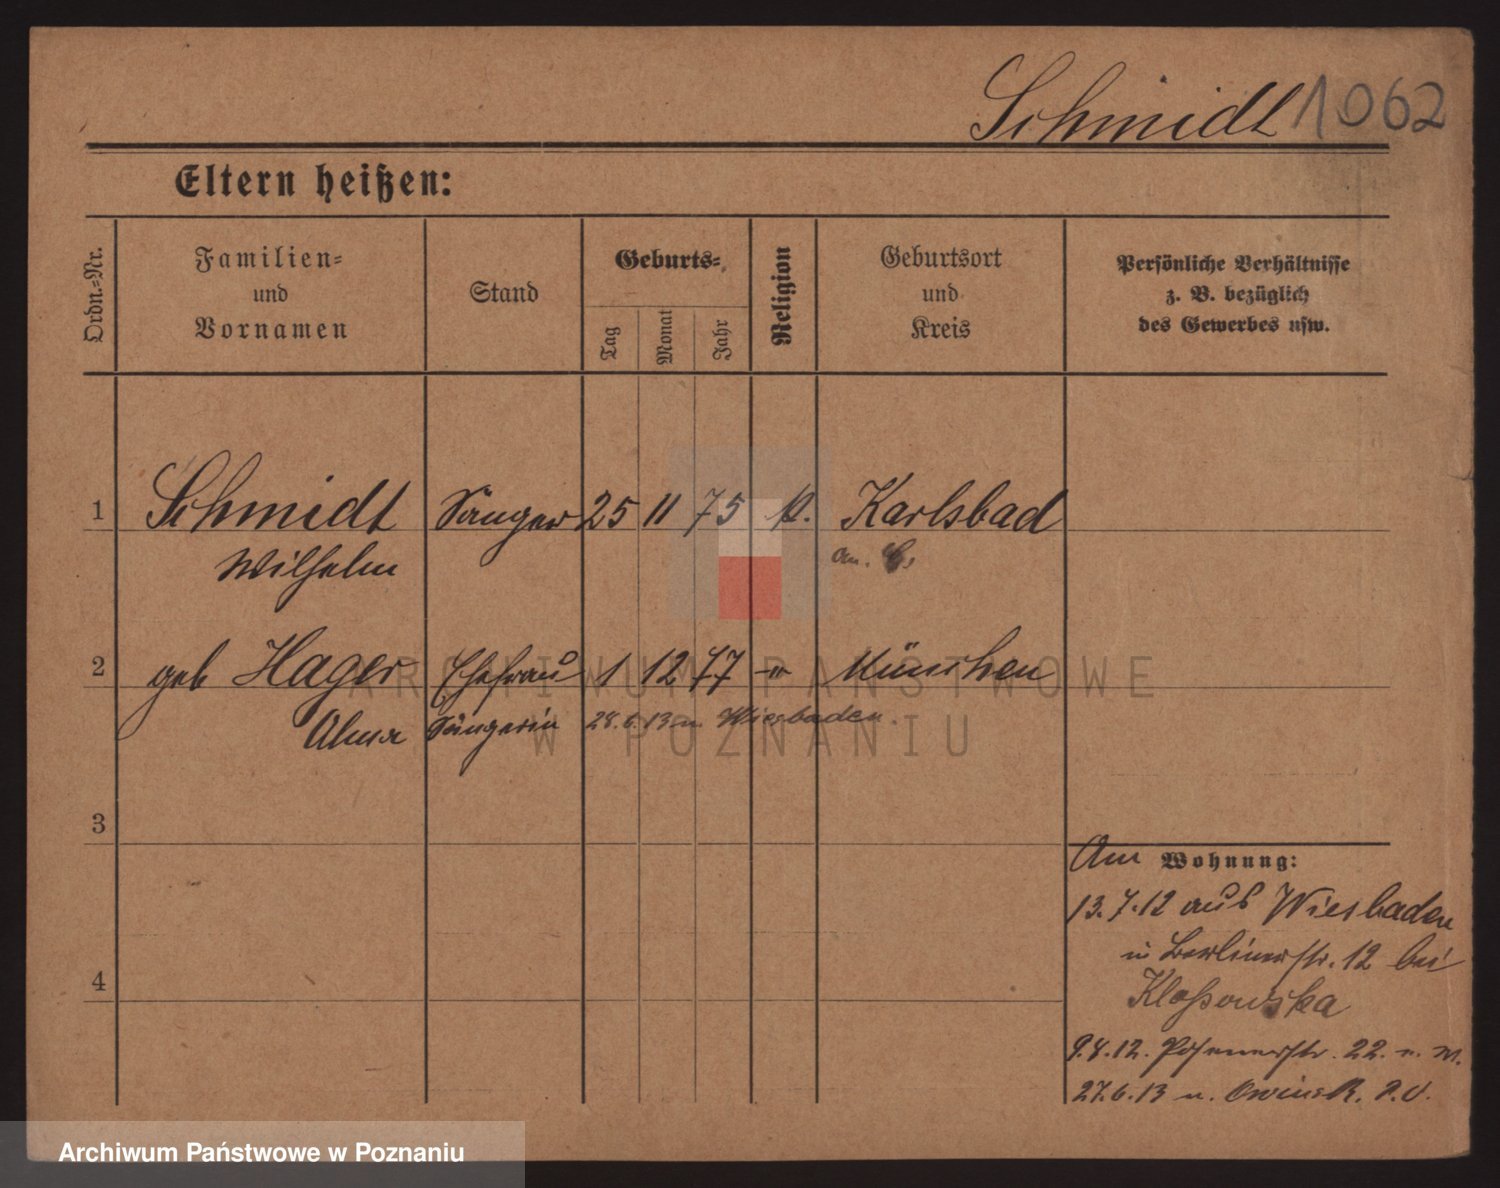 Schmidt 1062
Eltern heißen:
Ordn.-Nr.
Familien-
und
Vornamen
Stand
Geburts-
Tag
Monat
Jahr
Religion
Geburtsort
und
Kreis
Persönliche Verhältnisse
z. B. bezüglich
des Gewerbes usw.
1 Schmidt Sänger 25 11 75 k. Karlsbad
Wilhelm
2 geb Hager Ehefrau 1 12 77 München
Alma Sängerin 28.6.13 n. Wiesbaden.
3
4
Am Wohnung:
13.7.12 aus Wiesbaden
in Berlinerstr. 12 bei
Kloßowska
9.8.12. Posenerstr. 22.
27.6.13 n. Owinsk.
ARCHIWUM PAŃSTWOWE
W POZNANIU
Archiwum Państwowe w Poznaniu